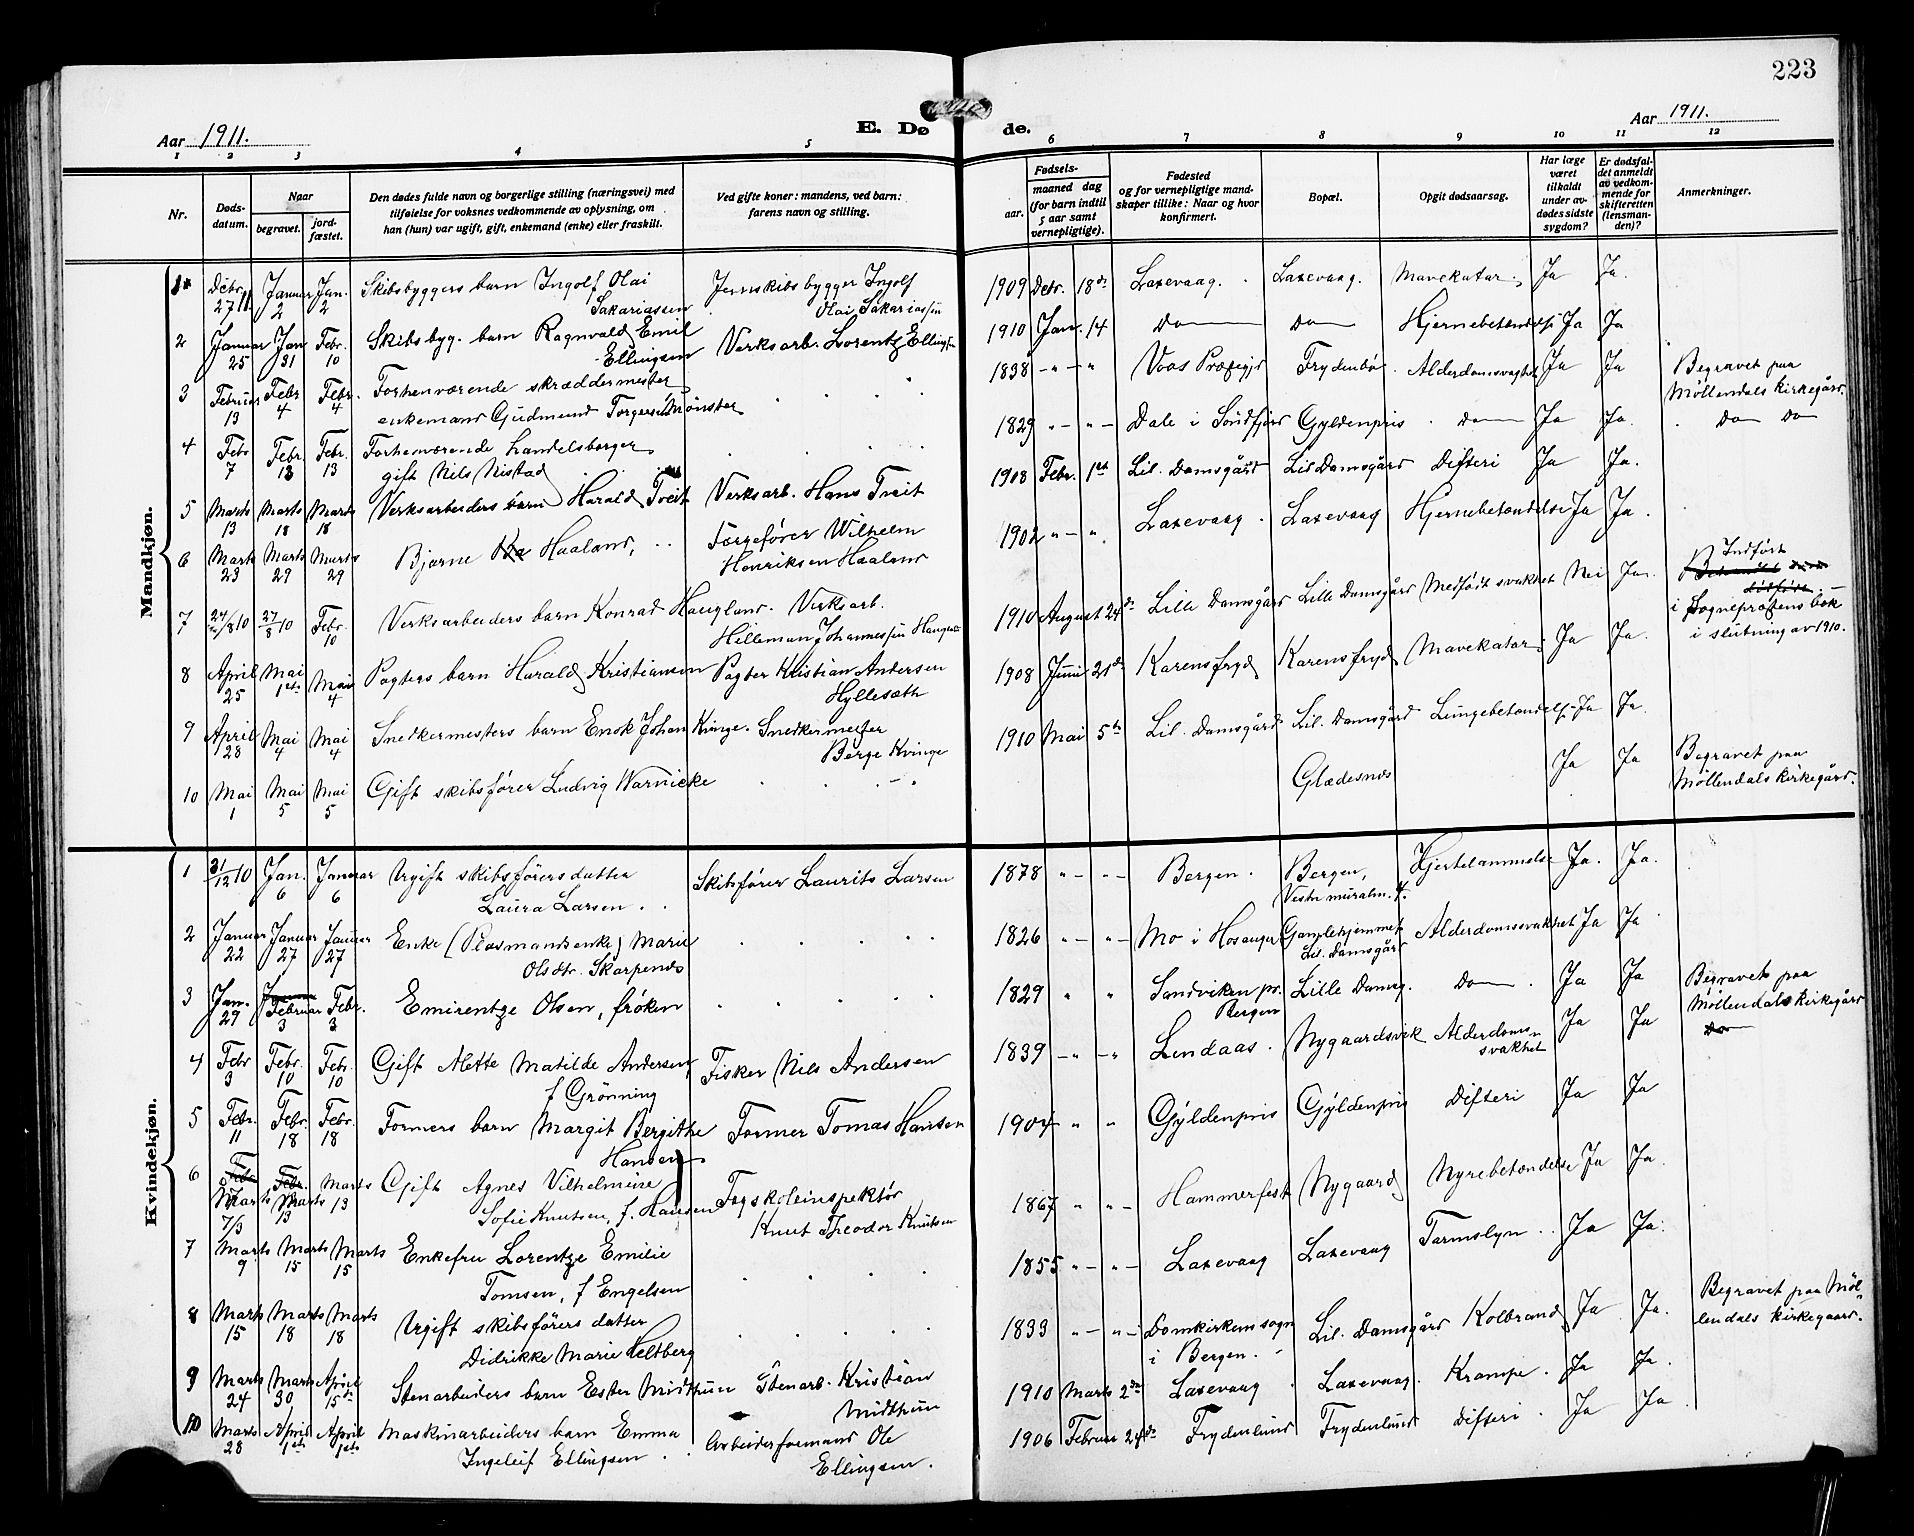 223
Aar 1911.
E. Dø de.
Aar 1911.
1 2 3 4 5 6 7 8 9 10 11 12
Nr.
Døds-
datum.
Naar
begravet.
jord-
fæstet.
Den dødes fulde navn og borgerlige stilling (næringsvei) med
tilføielse for voksnes vedkommende av oplysning, om
han (hun) var ugift, gift, enkemand (enke) eller fraskilt.
Ved gifte koner: mandens, ved barn:
farens navn og stilling.
Fødsels-
aar.
maaned dag
(for barn indtil
5 aar samt
vernepligtige).
Fødested
og for vernepligtige mand-
skaper tillike: Naar og hvor
konfirmert.
Bopæl.
Opgit dødsaarsag.
Har læge
været
tilkaldt
under av-
dødes sidste
sygdom?
Er dødsfal-
det anmeldt
av vedkom-
mende for
skifteretten
(lensman-
den)?
Anmerkninger.
Mandkjøn.
1 Debr. Januar Jan. Skibsbyggers barn Ingolf Olai Jernskibsbygger Ingolf 1909 Debr. 18de Laxevaag. Laxevaag. Mavekatar. Ja Ja.
27/11 2 2 Sakariassen Olai Sakariassen
2 Januar Jan Febr. Skibsbyg. barn Ragnvald Emil Verksarb. Lorentz Ellingsen 1910 Jan. 14 Do Do Hjernebetændelse Ja Ja
25 31 10 Ellingsen
3 Februar Febr Febr. Forhenværende skræddermester 1838 Voss Præstegj. Frydenbø. Alderdomssvaghet Ja Ja Begravet paa
13 4 4 enkemand Gudmund Torgersen Mønster Møllendals kirkegård.
4 Febr Febr. Febr. Forhenværende handelsborger 1829 Dale i Søndfjord Gyldenpris Do Ja Ja. Do Do
7 13 13 gift Nils Nistad
5 Marts Marts Marts Verksarbeiders barn Harald Tveit Verksarb. Hans Tveit 1908 Febr. 1ste Lil. Damsgård Lil. Damsgård Difteri Ja Ja.
13 18 18
6 Marts Marts Marts Bjarne Haaland, Færgefører Wilhelm 1902 Laxevaag. Laxevaag Hjernebetændelse Ja Ja.
23 29 29 Henriksen Haaland
7 24/8 10 27/8 10 Febr. Verksarbeiders barn Konrad Haugland. Verksarb. 1910 August 24de Lille Damsgård Lille Damsgård Medfødt svakhet Nei Ja. Indført
10 Hilleman Johannessen Haugland i Sogneprestens bok
i slutning av 1910.
8 April Mai Mai Pagters barn Harald Kristiansen Pagter Kristian Andersen 1908 Juni 21de Karensfryd Karensfryd Mavekatar. Ja Ja.
25 1ste 4 Hyllesæth
9 April Mai Mai Snedkermesters barn Enok Johan Kvinge. Snedkermester 1910 Mai 5te Lil. Damsgård Lil. Damsgård Lungebetændelse Ja Ja.
28 4 4 Berge Kvinge
10 Mai Mai Mai Gift skibsfører Ludvig Warnicke Glædesnes Ja Ja Begravet paa
1 5 5 Møllendals kirkegård.
Kvindekjøn.
1 31/12 10 Jan. Januar Ugift skibsførersdatter Skibsfører Laurits Larsen 1878 Bergen. Bergen, Hjertelammelse Ja. Ja.
6 6 Laura Larsen. Vestre muralm. 4.
2 Januar Januar Januar Enke (Plasmandsenke) Marie 1826 Mo i Hosanger Gamlehjemmet Alderdomssvakhet Ja Ja
22 27 27 Olsdtr. Skarpenes Lil. Damsgård
3 Jan. Februar Febr. Emirentze Olsen, frøken 1829 Sandviken pr. Lille Damsg. Do. Ja Ja Begravet paa
29 3 3 Bergen Møllendals kirkegård
4 Febr Febr. Febr. Gift Alette Matilde Andersen, Fisker Nils Andersen 1839 Lindaas. Nygaardsvik Alderdoms- Ja Ja Do
3 10 10 f. Grønning svakhet
5 Febr. Febr. Febr. Formers barn Margit Bergitte Former Tomas Hansen 1904 Gyldenpris Gyldenpris Difteri Ja Ja
11 18 18 Hansen
6 Febr. Febr. Marts Gift Agnes Vilhelmine Fagskoleinspektør 1867 Hammerfest Nygaard Nyrebetændelse Ja Ja.
Marts Marts 13 Sofie Knutsen, f. Hansen Knut Theodor Knutsen
7/3 13
7 Marts Marts Marts Enkefru Lorentze Emilie 1855 Laxevaag Laxevaag Tarmslyn. Ja Ja.
9 15 15 Tomsen, f. Engelsen
8 Marts Marts Marts Ugift skibsførers datter 1833 Domkirkens sogn Lil. Damsgård Kolbrand Ja Ja. Begravet paa Møl-
15 18 18 Didrikke Marie Heltberg i Bergen. lendals kirkegaard.
9 Marts Marts April Stenarbeiders barn Ester Midthun Stenarb. Kristian 1910 Marts 2den Laxevaag Laxevaag. Krampe. Ja Ja.
24 30 15de Midthun
10 Marts April April Maskinarbeiders barn Emma Arbeiderformand Ole 1906 Februar 24de Frydenlund Frydenlund Difteri. Ja Ja.
28 1ste 1ste Ingeleif Ellingsen. Ellingsen.